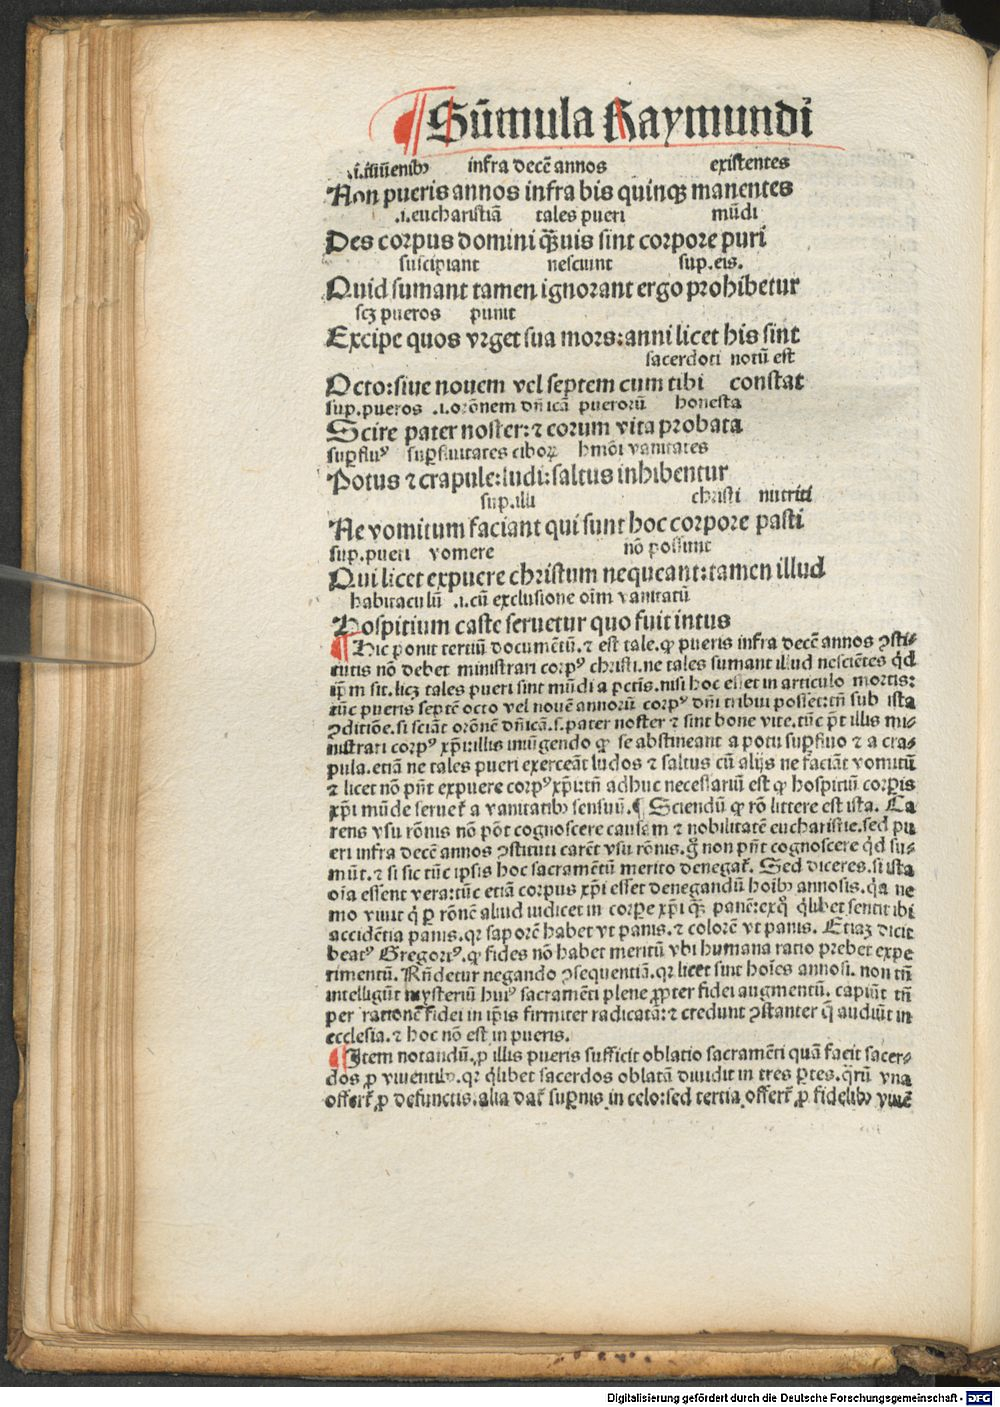 ¶ Sūmula Raymundi
.i. iuuenibꝰ infra decē annos existentes
Non pueris annos infra bis quinqꝫ manentes
.i. eucharistiā tales pueri mūdi
Des corpus domini q̄uis sint corpore puri
suscipiant nesciunt sup. eis.
Quid sumant tamen ignorant ergo prohibetur
scꝫ pueros punit
Excipe quos vrget sua mors: anni licet his sint
sacerdoti notū est
Octo: siue nouem vel septem cum tibi constat
sup. pueros .i. orōnem dn̄icā puerorū honesta
Scire pater noster: ⁊ eorum vita probata
suꝑfluꝰ suꝑfluitates ciboꝝ hmōi vanitates
Potus ⁊ crapule: ludi: saltus inhibentur
sup. illi christi nutriti
Ne vomitum faciant qui sunt hoc corpore pasti
sup. pueri vomere nō possunt
Qui licet expuere christum nequeant: tamen illud
habitaculū .i. cū exclusione oīm vanitatū
Hospitium caste seruetur quo fuit intus
¶ Hic ponit tertiū documētū. ⁊ est tale. ꝙ pueris infra decē annos ꝯsti-
tutis nō debet ministrari corpꝰ christi. ne tales sumant illud nesciētes qd̄
ip̄m sit. licꝫ tales pueri sint mūdi a pctīs. nisi hoc esset in articulo mortis:
tūc pueris septē octo vel nouē annorū corpꝰ dn̄i tribui posset: tn̄ sub ista
ꝯditiōe. si sciāt orōnē dn̄icā. s. pater noster ⁊ sint bone vite. tūc p̄t illis mi-
nistrari corpꝰ xp̄i: illis iniūgendo ꝙ se abstineant a potu suꝑfluo ⁊ a cra-
pula. etiā ne tales pueri exerceāt ludos ⁊ saltus cū alijs ne faciāt vomitū
⁊ licet nō pn̄t expuere corpꝰ xp̄i: tn̄ adhuc necessariū est ꝙ hospitiū corꝑis
xp̄i mūde seruet̄ a vanitatibꝰ sensuū. ¶ Sciendū ꝙ rō littere est ista. Ca
rens vsu rōnis nō pōt cognoscere causam ⁊ nobilitatē eucharistie. sed pu
eri infra decē annos ꝯstituti carēt vsu rōnis. g̊ non pn̄t cognoscere qd̄ su-
mūt. ⁊ si sic tūc ipsis hoc sacramētū merito denegat̄. Sed diceres. si ista
oīa essent vera: tūc etiā corpus xp̄i esset denegandū hoībꝰ annosis. q̄a ne
mo viuit q̄ ꝑ rōnē aliud iudicet in corꝑe xp̄i q̄ꝫ panē: exq̊ q̄libet sentit ibi
accidētia panis. qꝛ saporē habet vt panis. ⁊ colorē vt panis. Etiaꝫ dicit
beatꝰ Gregoriꝰ. ꝙ fides nō habet meritū vbi humana ratio prebet expe
rimentū. Rn̄detur negando ꝯsequentiā. qꝛ licet sint hoīes annosi. non tn̄
intelligūt mysteriū huiꝰ sacramēti plene ꝓpter fidei augmentū. capiūt tn̄
per rationē fidei in ip̄is firmiter radicatā: ⁊ credunt ꝯstanter q̄ audiūt in
ecclesia. ⁊ hoc nō est in pueris.
¶ Item notandū. ꝓ illis pueris sufficit oblatio sacramēti quā facit sacer-
dos ꝓ viuentibꝰ. qꝛ q̄libet sacerdos oblatā diuidit in tres ꝑtes. q̄rū vna
offert̄ ꝓ defunctis. alia dat̄ suꝑnis in celo: sed tertia offert̄ ꝓ fidelibꝰ viuē
Digitalisierung gefördert durch die Deutsche Forschungsgemeinschaft - DFG